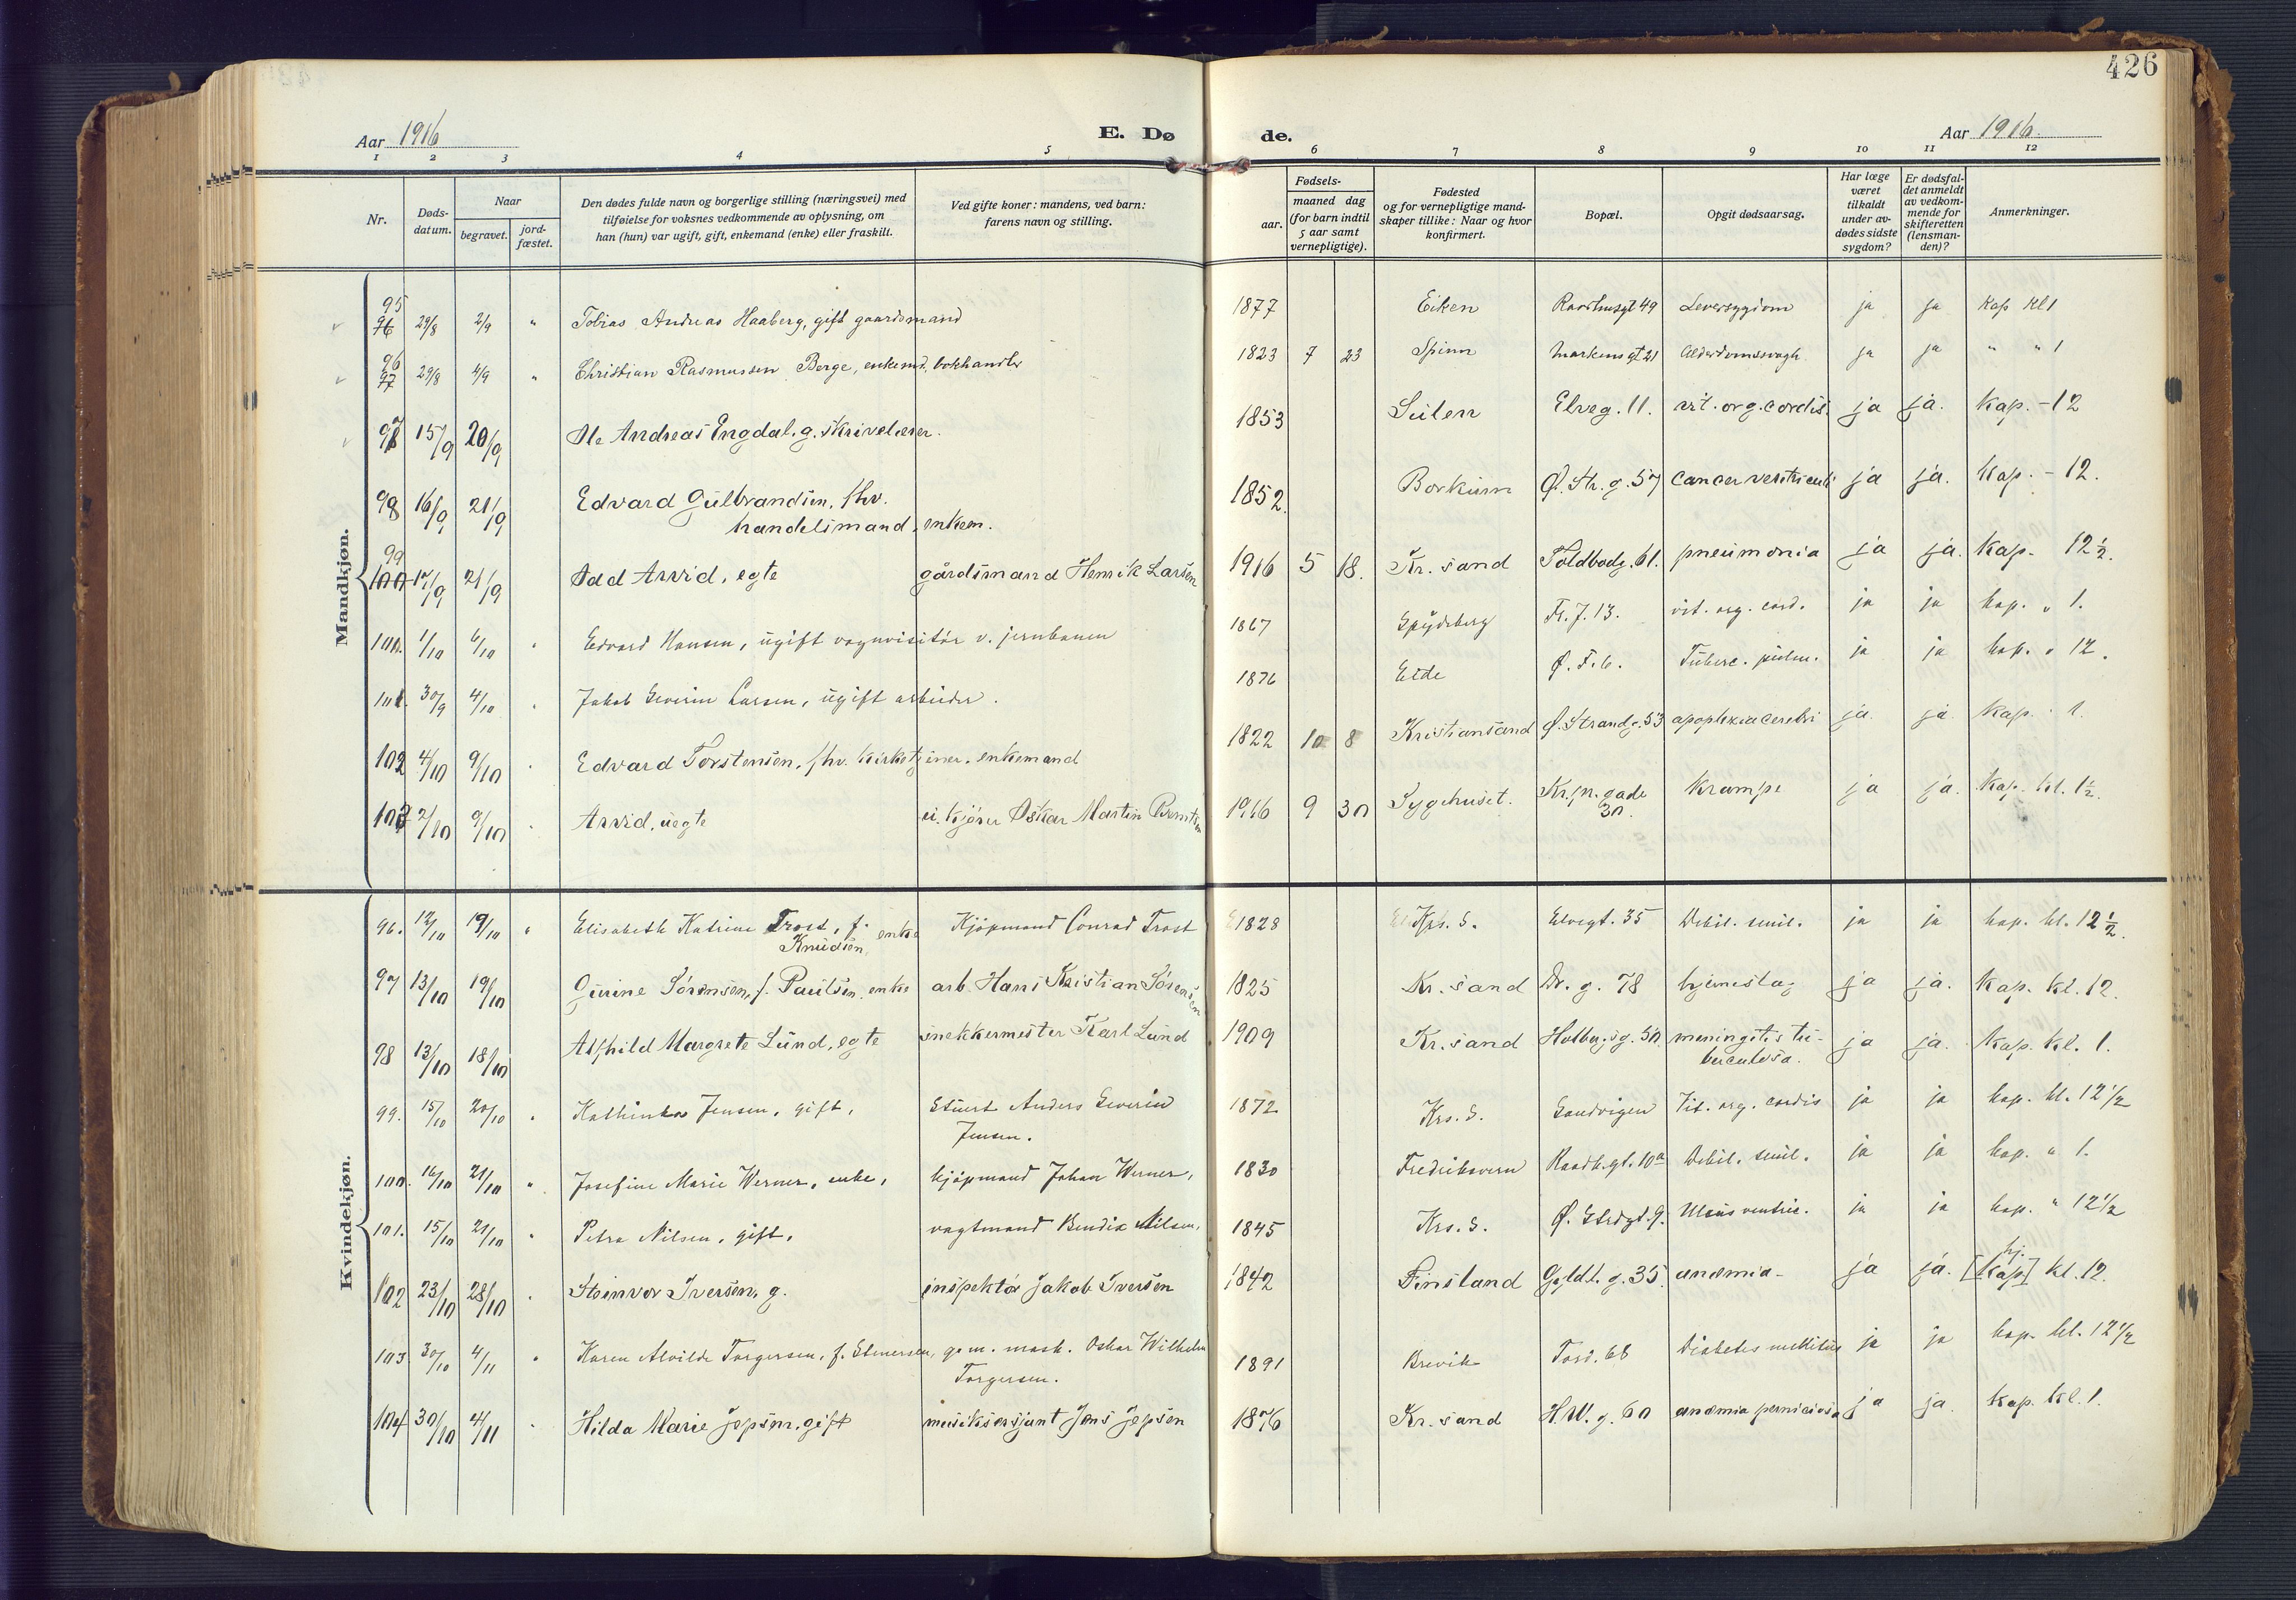 426
Aar 1916
E. Dø
de.
Aar 1916.
1 2 3 4 5 6 7 8 9 10 11 12
Nr.
Døds-
datum.
Naar
begravet.
jord-
fæstet.
Den dødes fulde navn og borgerlige stilling (næringsvei) med
tilføielse for voksnes vedkommende av oplysning, om
han (hun) var ugift, gift, enkemand (enke) eller fraskilt.
Ved gifte koner: mandens, ved barn:
farens navn og stilling.
Fødsels-
aar.
maaned dag
(for barn indtil
5 aar samt
vernepligtige).
Fødested
og for vernepligtige mand-
skaper tillike: Naar og hvor
konfirmert.
Bopæl.
Opgit dødsaarsag.
Har læge
været
tilkaldt
under av-
dødes sidste
sygdom?
Er dødsfal-
det anmeldt
av vedkom-
mende for
skifteretten
(lensman-
den)?
Anmerkninger.
Mandkjøn.
95 96 29/8 2/9 " Tobias Andreas Haaberg, gift gaardsmand 1877 Eiken Raadhusgt 49 Leversygdom ja ja Kap kl 1
96 97 29/8 4/9 " Christian Rasmussen Berge, enkemd. bokhandler 1823 7 23 Spinn Markensgt 21 Alderdomssvagh. ja ja " " 1
97 15/9 20/9 Ole Andreas Engdal. g. skrivelærer. 1853 Elveg. 11. vit. org. cordis. ja ja. Kap. - 12
98 16/9 21/9 Edvard Gulbrandsen, fhv.
handelsmand, enkem. 1852. Borkum Ø. Str. g. 57 cancer ventriculi ja ja. Kap. - 12.
99 100 17/9 21/9 Odd Arvid, egte gårdsmand Henrik Larsen 1916 5 18. Kr. sand Toldbodg. 61. pneumonia ja ja. Kap. 12 ½.
100. 1/10 6/10 " Edvard Hansen, ugift vognvisitør v. jernbanen 1867 Spydeberg Fr. J. 13. vit. org. cord. ja ja kap. " 1.
101. 30/9 4/10 " Jakob Severin Larsen, ugift arbeider. 1876 Eide Ø. F. 6. Tuberc. pulm. ja ja kap. " 12.
102 4/10 9/10 " Edvard Torstensen, fhv. kirketjener. enkemand 1822 10 8 Kristiansand Ø. Strandg. 53 apoplexia cerebri ja. ja. Kap. " 1.
103 2/10 9/10 " Arvid, uegte Oskar Martin Berntsen 1916 9 30 Sygehuset. Kr. pr. gade
30. Krampe ja ja. Kap. kl. 1½.
Kvindekjøn.
96. 12/10 19/10 " Elisabeth Katrine Trost, f. enke
Knudsen, Kjøpmand Conrad Trost 1828 Krs. S. Elvegt. 35 Debil. senil. ja ja kap. kl. 12 ½.
97 13/10 19/10 Gurine Sørensen, f. Paulsen. enke arb. Hans Kristian Sørensen 1825 Kr. sand Dr. g. 78 hjerneslag ja ja. Kap. kl. 12.
98 13/10 18/10 Alfhild Margrete Lund, egte snekkermester Karl Lund 1909 Kr. sand Holbergsg. 50. meningitis tu-
berculosa. ja ja. Kap. kl. 1.
99. 15/10 20/10 " Kathinka Jensen, gift, Stuert Anders Severin
Jensen. 1872 Krs. S. Sandvigen Vit. org. cordis ja ja kap. kl. 12 ½
100. 16/10 21/10 " Josefine Marie Werner, enke, kjøpmand Johan Werner, 1830 Fredriksvern Raadh.gt. 10a Debil. senil. ja ja kap. " 1.
101. 15/10 21/10 " Petra Nilsen, gift, vagtmand Bendix Nilsen, 1845 Krs. S. Ø. Strdgt. 9. Ulcus ventric. ja ja kap. " 12 ½
102 23/10 28/10 " Steinvor Iversen, g. inspektør Jakob Iversen 1842 Finsland Gyldl. g. 35 anæmia - ja ja. hj. [Kap] kl. 12.
103. 30/10 4/11 " Karen Alvilde Torgersen, f. Elmersen, g. m. mask. Oskar Wilhelm
Torgersen. 1891 Brevik Tord. 68 Diabetes mellitus ja ja kap. kl. 12 ½
104 30/10 4/11 " Hilda Marie Jepsen, gift musiksersjant Jens Jepsen 1876 Kr. sand H. W. g. 60 anæmia perniciosa ja ja. Kap. kl. 1.